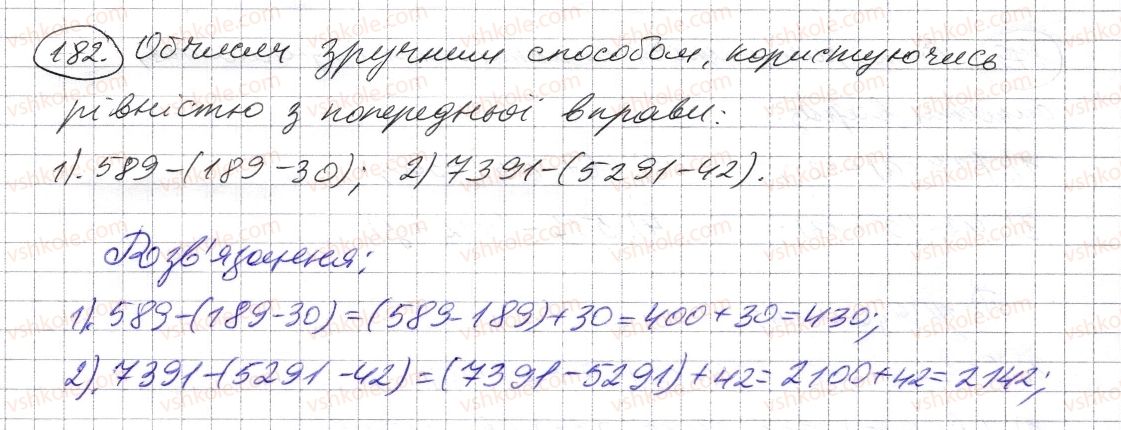 182. Обчисли зручним способом, користуючись
рівністю з попередньої вправи:
1). 589-(189-30); 2) 7391-(5291-42).
Розв'язання:
1). 589-(189-30)=(589-189)+30=400+30=430;
2). 7391-(5291-42)=(7391-5291)+42=2100+42=2142;